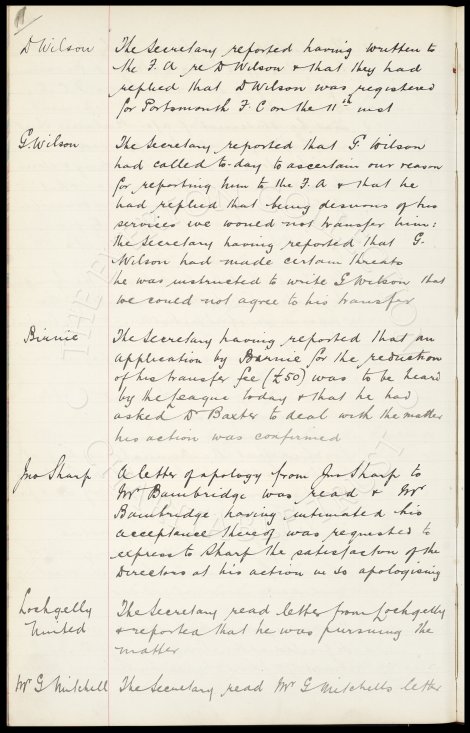 D Wilson The Secretary reported having written to
the F.A re D Wilson & that they had
replied that D Wilson was registered
for Portsmouth F.C on the 11th inst
G. Wilson The Secretary reported that G. Wilson
had called to-day to ascertain our reason
for reporting him to the F.A & that he
had replied that being desirous of his
services we would not transfer him:
the Secretary having reported that G.
Wilson had made certain threats
he was instructed to write G Wilson that
we could not agree to his transfer
Birnie The Secretary having reported that an
application by Birnie for the reduction
of his transfer fee (£50) was to be heard
by the League today & that he had
asked Dr Baxter to deal with the matter
his action was confirmed
Jno Sharp A letter of apology from Jno Sharp to
Mr Bainbridge was read & Mr
Bainbridge having intimated his
acceptance thereof was requested to
express to Sharp the satisfaction of the
Directors at his action in so apologising
Lochgelly The Secretary read letter from Lochgelly
United & reported that he was pursuing the
matter
Mr G Mitchell The Secretary read Mr G Mitchells letter